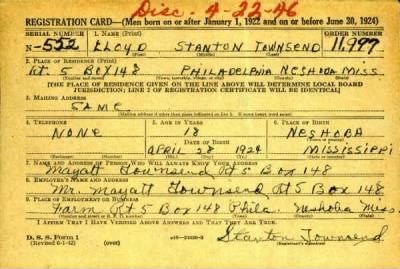 Disc. 4-22-46
REGISTRATION CARD—(Men born on or after January 1, 1922 and on or before June 30, 1924)
SERIAL NUMBER 1. NAME (Print) ORDER NUMBER
N-552 FLOYD STANTON TOWNSEND 11,977
2. PLACE OF RESIDENCE (Print)
Rt. 5 BOX 148 PHILADELPHIA NESHOBA MISS.
[THE PLACE OF RESIDENCE GIVEN ON THE LINE ABOVE WILL DETERMINE LOCAL BOARD
JURISDICTION; LINE 2 OF REGISTRATION CERTIFICATE WILL BE IDENTICAL]
3. MAILING ADDRESS
SAME
[Mailing address if other than place indicated on line 2. If same insert word same]
4. TELEPHONE 5. AGE IN YEARS 6. PLACE OF BIRTH
NONE 18 NESHOBA
DATE OF BIRTH
APRIL 28 1924 MISSISSIPPI
7. NAME AND ADDRESS OF PERSON WHO WILL ALWAYS KNOW YOUR ADDRESS
Mayatt Townsend Rt 5 Box 148
8. EMPLOYER'S NAME AND ADDRESS
Mr. Mayatt Townsend Rt 5 Box 148
9. PLACE OF EMPLOYMENT OR BUSINESS
Farm Rt 5 Box 148 Phila. Neshoba Miss.
I AFFIRM THAT I HAVE VERIFIED ABOVE ANSWERS AND THAT THEY ARE TRUE.
D. S. S. Form 1
(Revised 6-1-42) (over)
Stanton Townsend